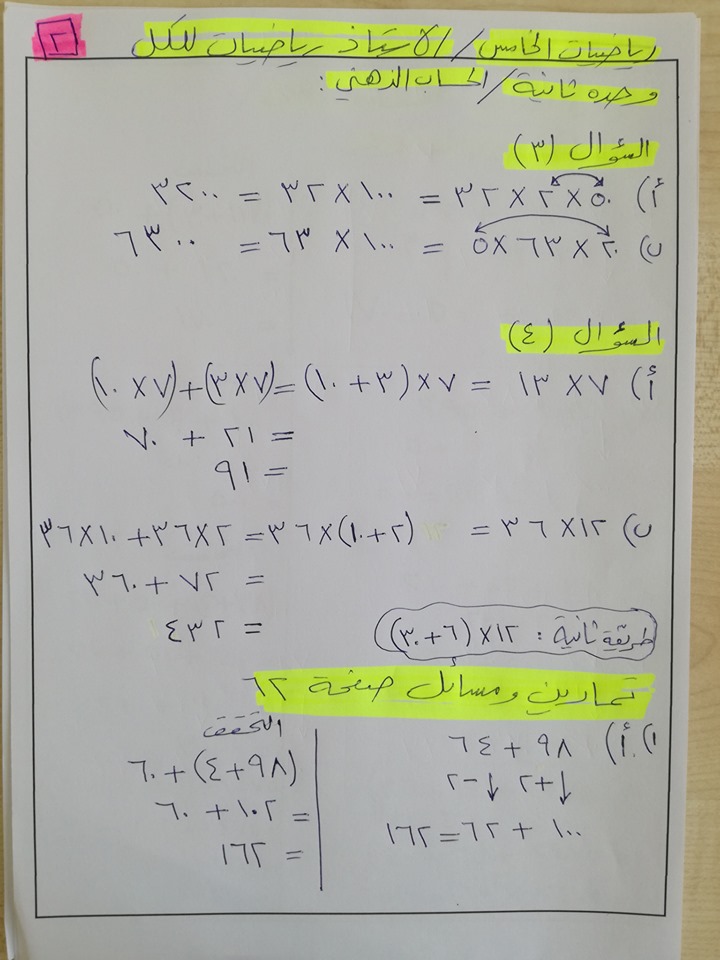 رياضيات الخامس / الاستاذ رياضيات للكل ٢
وحده ثانية / الحساب الذهني :
السؤال (٣)
أ) ٥٠ × ٢ × ٣٢ = ١٠٠ × ٣٢ = ٣٢٠٠
ب) ٢٠ × ٦٣ × ٥ = ١٠٠ × ٦٣ = ٦٣٠٠
السؤال (٤)
أ) ٧ × ١٣ = ٧ × (٣ + ١٠) = (٧ × ٣) + (٧ × ١٠)
= ٢١ + ٧٠
= ٩١
ب) ١٢ × ٣٦ = (٢ + ١٠) × ٣٦ = ٢ × ٣٦ + ١٠ × ٣٦
= ٧٢ + ٣٦٠
= ٤٣٢
طريقة ثانية : ١٢ × (٦ + ٣٠)
تمارين ومسائل صفحة ٦٢
١. أ) ٩٨ + ٦٤
+٢ -٢
١٠٠ + ٦٢ = ١٦٢
التحقق
(٩٨ + ٤) + ٦٠
= ١٠٢ + ٦٠
= ١٦٢